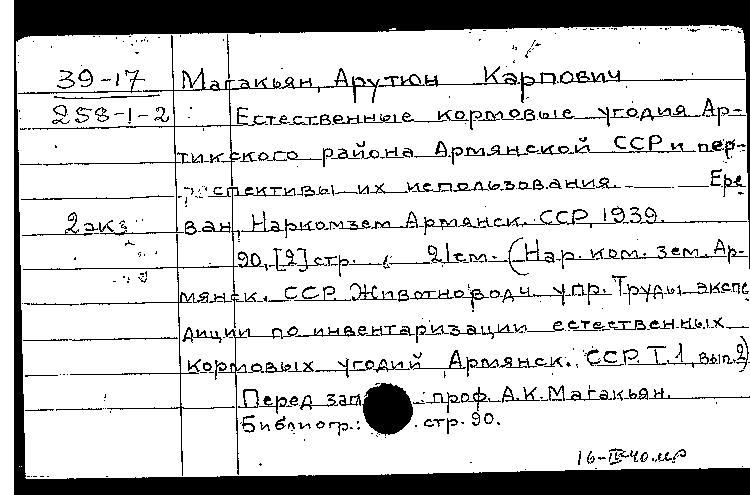 39-17 Магакьян, Арутюн Карпович
258-1-2 Естественные кормовые угодия Ар-
тикского района Армянской ССР и пер-
спективы их использования. Ере
2 экз ван, Наркомзем Армянск. ССР, 1939.
90, [2] стр. 21 см. (Нар. ком. зем. Ар-
мянск. ССР. Животноводч. упр. Труды экспе
диции по инвентаризации естественных
кормовых угодий Армянск. ССР. Т. 1, вып. 2)
Перед : проф. А.К. Магакьян.
Библиогр.: стр. 90.
16-IV-40